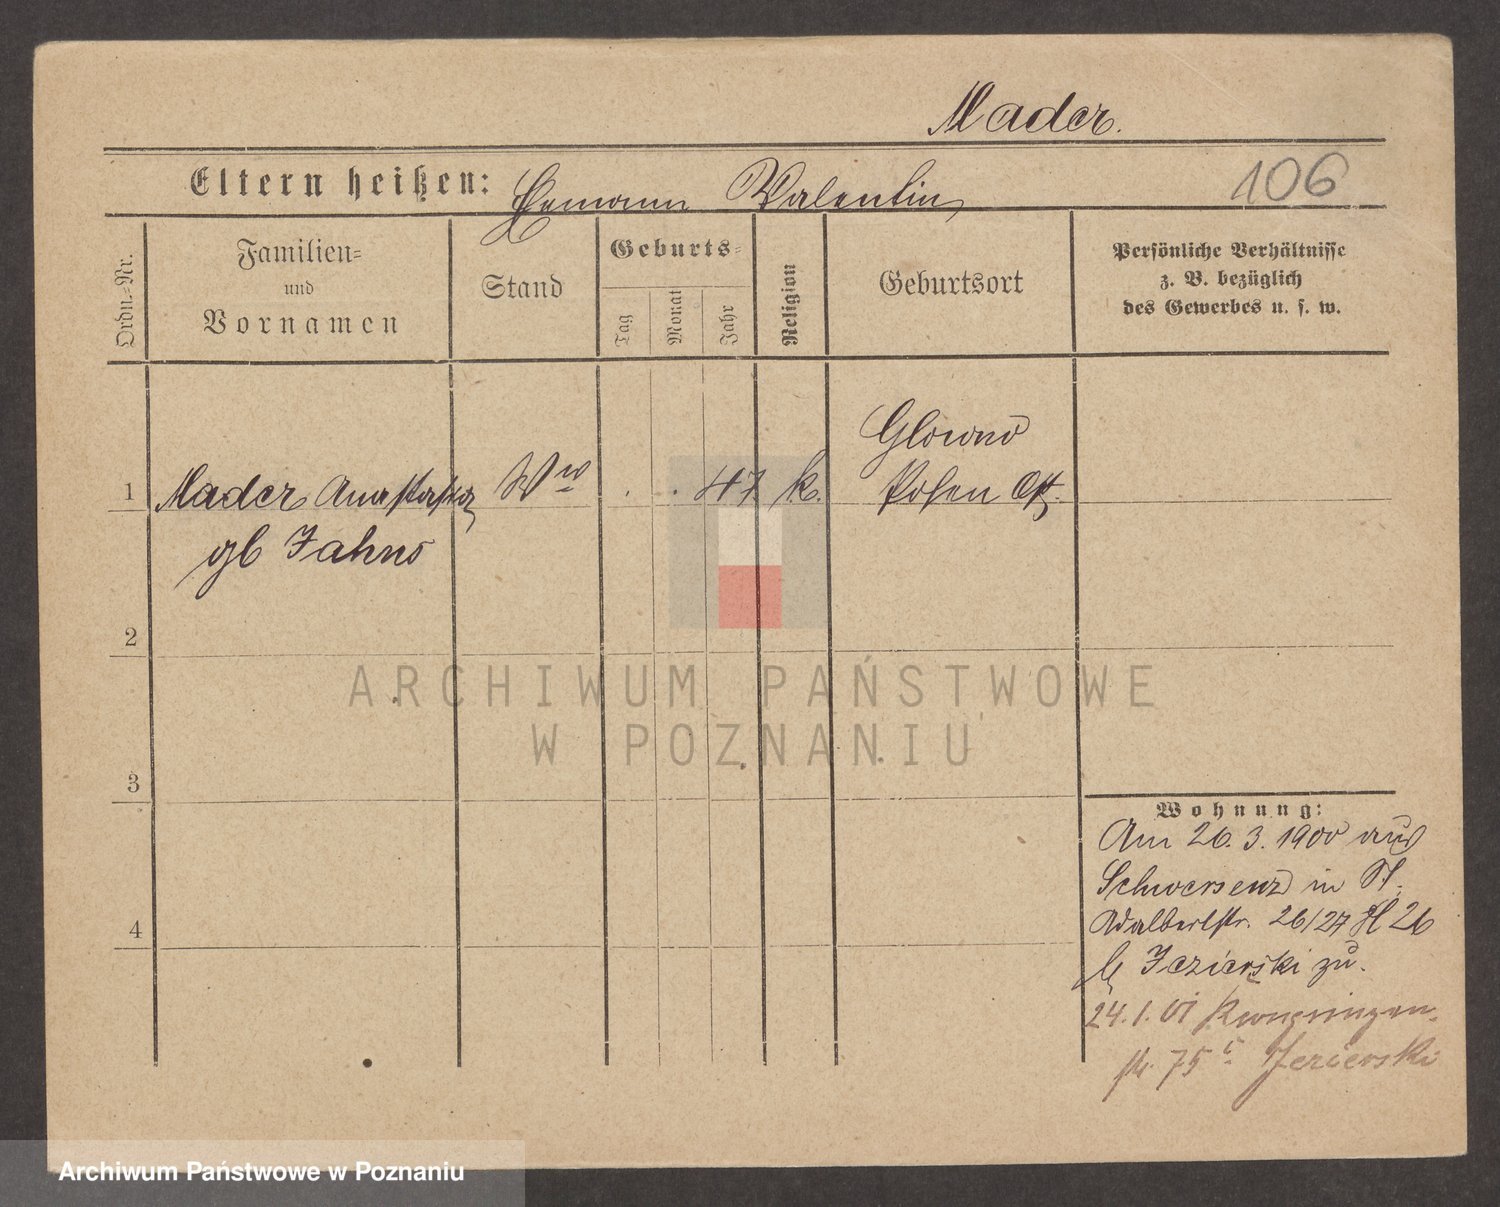 Mader.
Eltern heißen: Hemann Valentin
106
Ordn.-Nr.
Familien-
und
Vornamen
Stand
Geburts-
Tag
Monat
Jahr
Religion
Geburtsort
Persönliche Verhältnisse
z. B. bezüglich
des Gewerbes u. s. w.
1
Mader Anastasia
gb Jahns
Ww
. . 47
k.
Glowno
Posen Ost.
2
3
4
ARCHIWUM PAŃSTWOWE
W POZNANIU
Wohnung:
Am 26. 3. 1900 aus
Schwersenz in St.
Adalbertstr. 26/27 H 26
b Jezierski zu.
24.1.01
str. 75 b. Jezierski
Archiwum Państwowe w Poznaniu